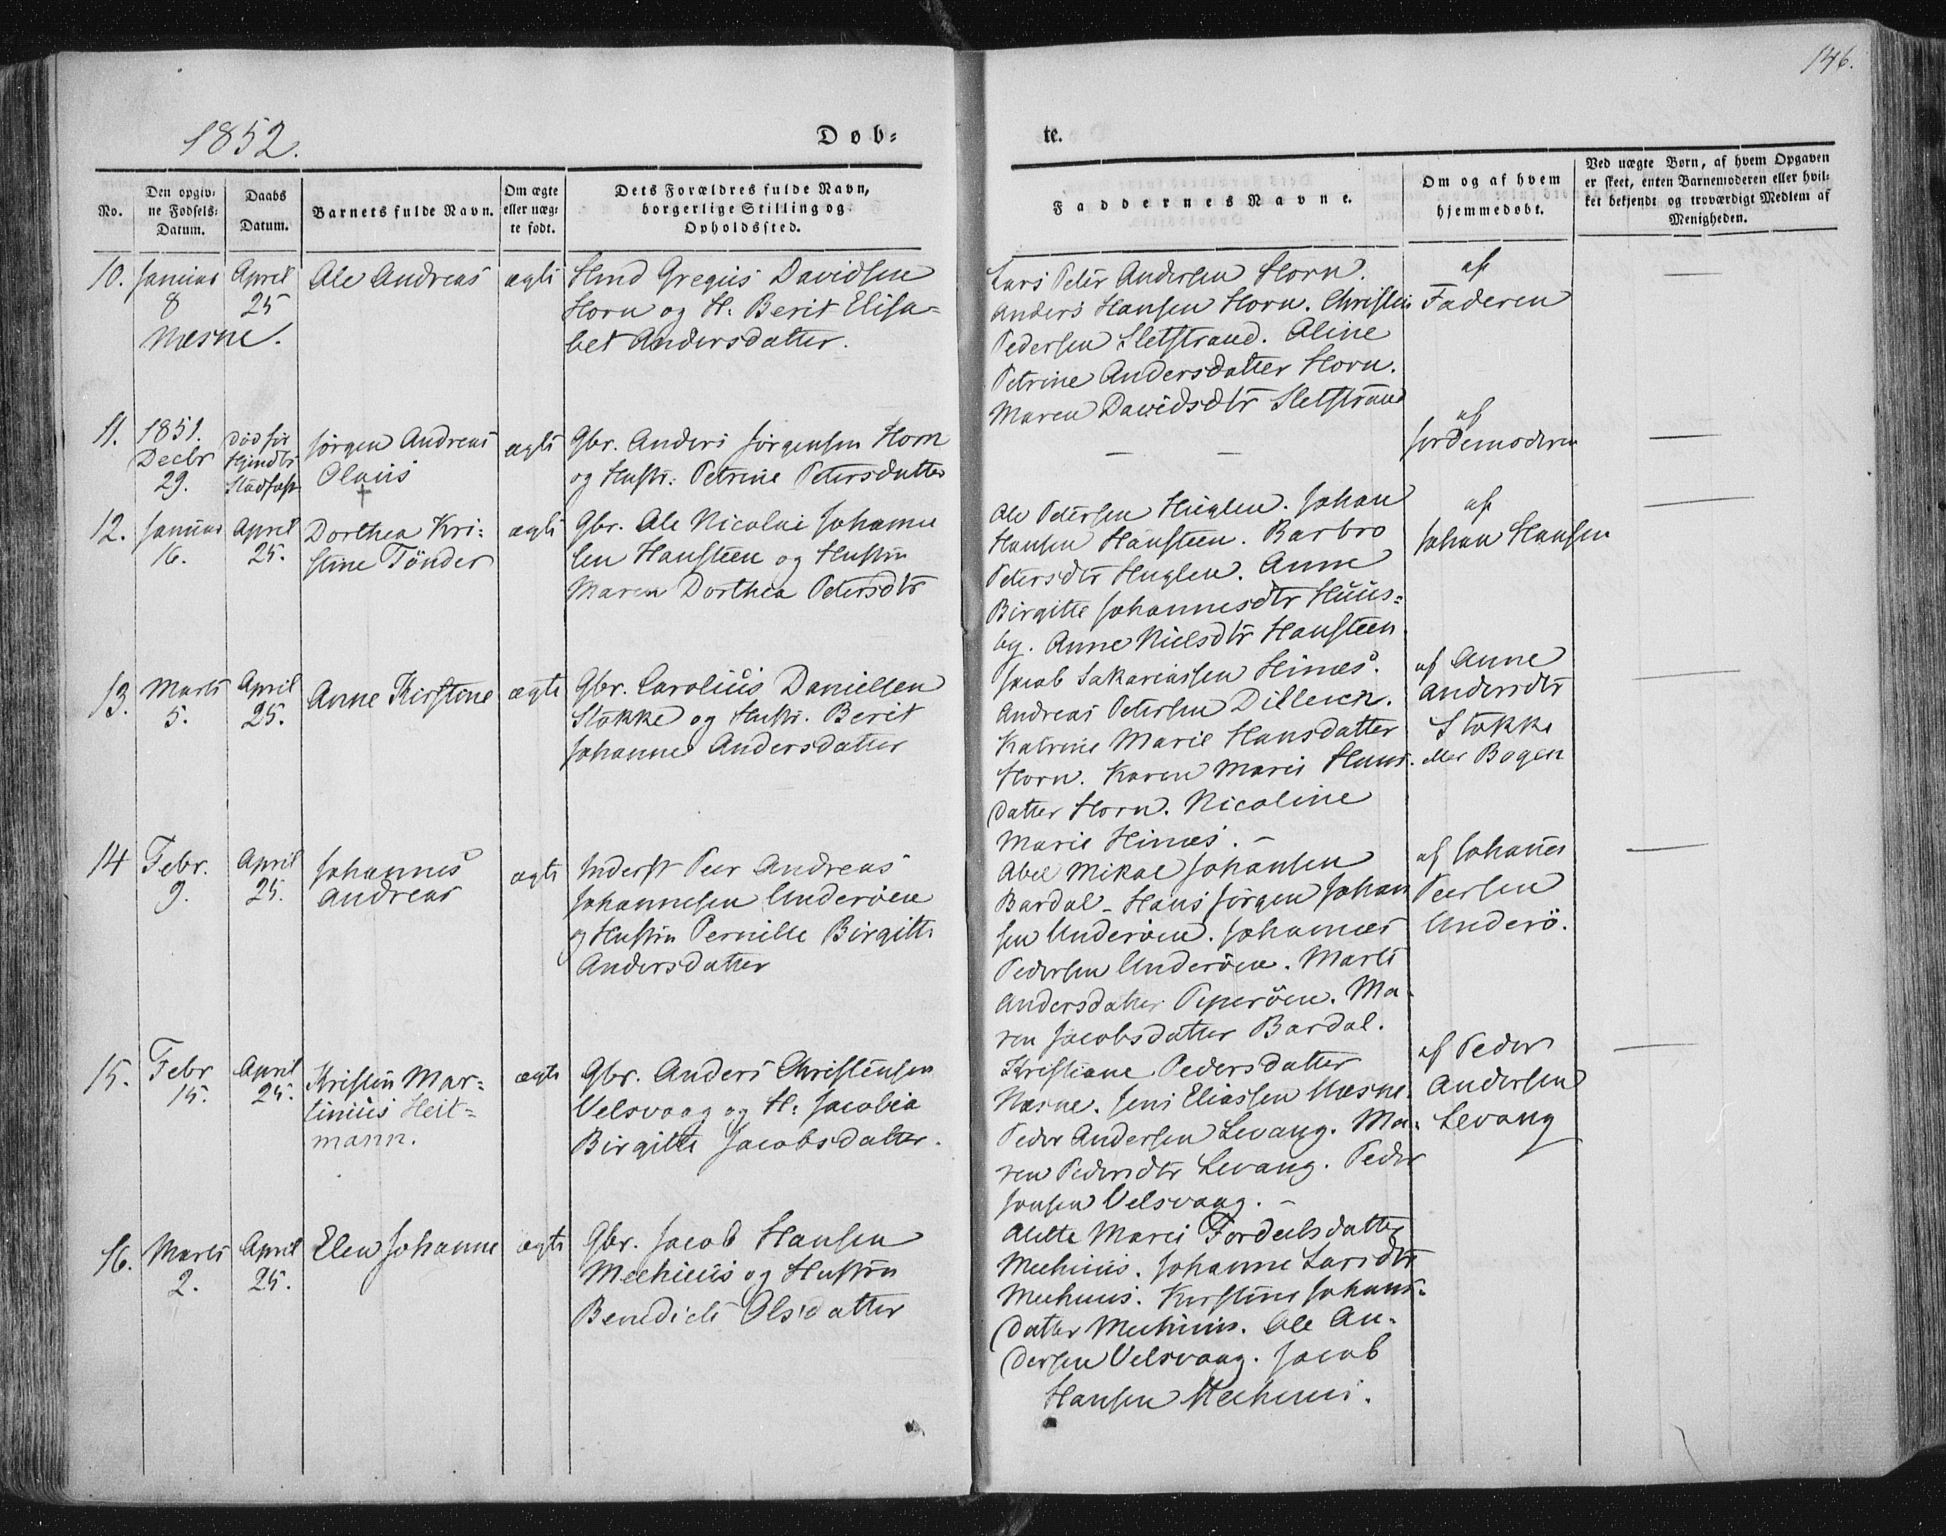 146.
1852.
Døb-
te.
No.
Den opgiv-
ne Fødsels-
Datum.
Daabs
Datum.
Barnets fulde Navn.
Om ægte
eller uæg-
te født.
Dets Forældres fulde Navn,
borgerlige Stilling og
Opholdssted.
Faddernes Navne.
Om og af hvem
hjemmedøbt.
Ved uægte Børn, af hvem Opgaven
er skeet, enten Barnemoderen eller hvil-
ket bekjendt og troværdigt Medlem af
Menigheden.
10.
Januar
8
Næsne.
April
25
Ole Andreas
ægte
Hmd Gregus Davidsen
Horn og H: Berit Elisa-
bet Andersdatter.
Lars Peter Andersen Horn.
Anders Hansen Horn. Christen
Pedersen Sletstrand. Aline
Petrine Andersdatter Horn.
Maren Davidsdtr Sletstrand
af
Faderen
—
11.
1851.
Decbr
29.
Død før
Stadfæst
Jørgen Andreas
Olaus
+
ægte
Gbr. Anders Jørgensen Horn
og Hustr: Petrine Petersdatter
— —
af
Jordemoderen
—
12.
Januar
16.
April
25.
Dorthea Kri-
stine Tönder
ægte
Gbr. Ole Nicolai Johanne
sen Hansteen og Hustru
Maren Dorthea Petersdtr
Ole Petersen Huglen. Johan
Hansen Hansteen. Barbro
Petersdtr Huglen. Anne
Birgitte Johannesdtr Huus-
by. Anne Nielsdtr Hansteen.
af
Johan Hansen
—
13.
Marts
5.
April
25.
Anne Kirstine
ægte
Gbr. Carolius Danielsen
Stokke og Hustr. Berit
Johanne Andersdatter
Jacob Sakariassen Himes.
Andreas Petersen
Katrine Marie Hansdatter
Horn. Karen Marie Hans-
datter Horn. Nicoline
Marie Himes. —
af Anne
Andersdtr
Stokke
eller Bogen
—
14
Febr.
9.
April
25.
Johannes
Andreas
ægte
Inderst Peer Andreas
Johannesen Underöen
og Hustru Pernille Birgitte
Andersdatter
Abel Mikal Johansen
Bardal - Hans Jörgen Johan
sen Underöen. Johannes
Pedersen Underöen. Marte
Andersdatter. Ma-
ren Jacobsdatter Bardal.
af Johanes
Peersen
Underö.
—
15.
Febr
15.
April
25.
Kristen Mar-
tinius Heit-
mann.
ægte
Gbr. Anders Christensen
Velsvaag og H: Jacobia
Birgitte Jacobsdatter.
Kristiane Pedersdatter
Næsne. Jens Eliassen Næsne.
Peder Andersen Levang. Ma-
ren Pedersdtr Levang. Peder
Jonsen Velsvaag. —
af Peder
Andersen
Levang
—
16.
Marts
2.
April
25.
Elen Johanne
ægte
Gbr. Jacob Hansen
Meehuus og Hustru
Benedicte Olsdatter
Alette Marie Fordeelsdatter
Meehuus. Johanne Larsdtr
Meehuus. Kirstine Johans-
datter Meehuus. Ole An-
dersen Velsvaag. Jacob
Hansen Meehuus.